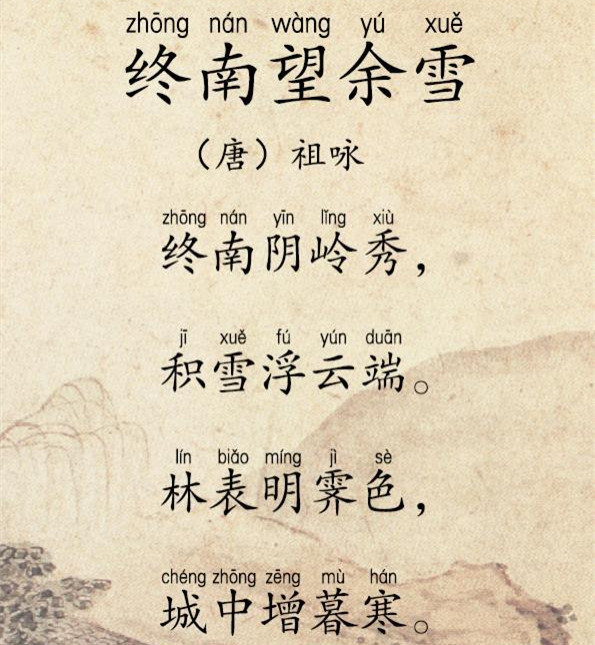 zhōng nán wàng yú xuě
终南望余雪
（唐）祖咏
zhōng nán yīn lǐng xiù
终南阴岭秀，
jī xuě fú yún duān
积雪浮云端。
lín biǎo míng jì sè
林表明霁色，
chéng zhōng zēng mù hán
城中增暮寒。